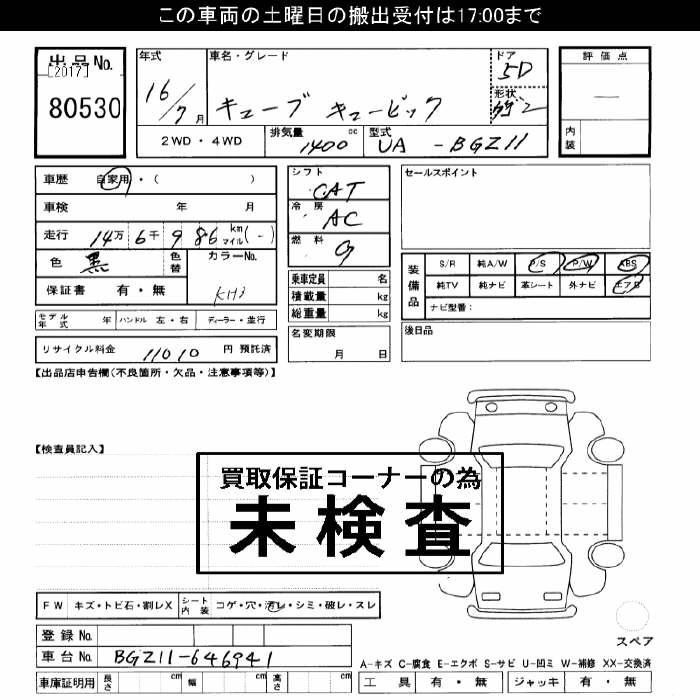 この車両の土曜日の搬出受付は17:00まで
出品No.
[2017]
80530
年式
16/7月
車名・グレード
キューブ キュービック
ドア
5D
形状
評価点
―
内装
2WD・4WD
排気量
1400cc
型式
UA-BGZ11
車歴 自家用・( )
車検 年 月
走行 14万6千986 km マイル (-)
色 黒 色替
カラーNo.
KH3
保証書 有・無
モデル年式 年 ハンドル 左・右 ディーラー・並行
リサイクル料金 11010 円 預託済
シフト
CAT
冷房
AC
燃料
G
乗車定員 名
積載量 kg
総重量 kg
名変期限
月 日
セールスポイント
装備品
S/R 純A/W P/S P/W ABS
純TV 純ナビ 革シート 外ナビ エアB
ナビ型番:
後日品
【出品店申告欄(不良箇所・欠品・注意事項等)】
【検査員記入】
買取保証コーナーの為
未検査
FW キズ・トビ石・割レX シート内装 コゲ・穴・汚レ・シミ・破レ・スレ
登録No.
車台No. BGZ11-646941
車庫証明用 長さ cm 幅 cm 高さ cm
スペア
A-キズ C-腐食 E-エクボ S-サビ U-凹ミ W-補修 XX-交換済
工具 有・無 ジャッキ 有・無